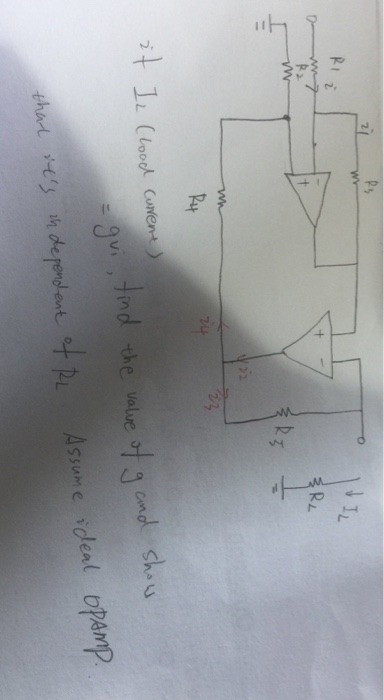 R1 i
R2
i1
R3
R4
i4
i2
i3
R5
RL
↓ IL
+
-
+
-
if IL (Load current)
= gvi, find the value of g and show
that it's independent of RL Assume ideal OPAMP.